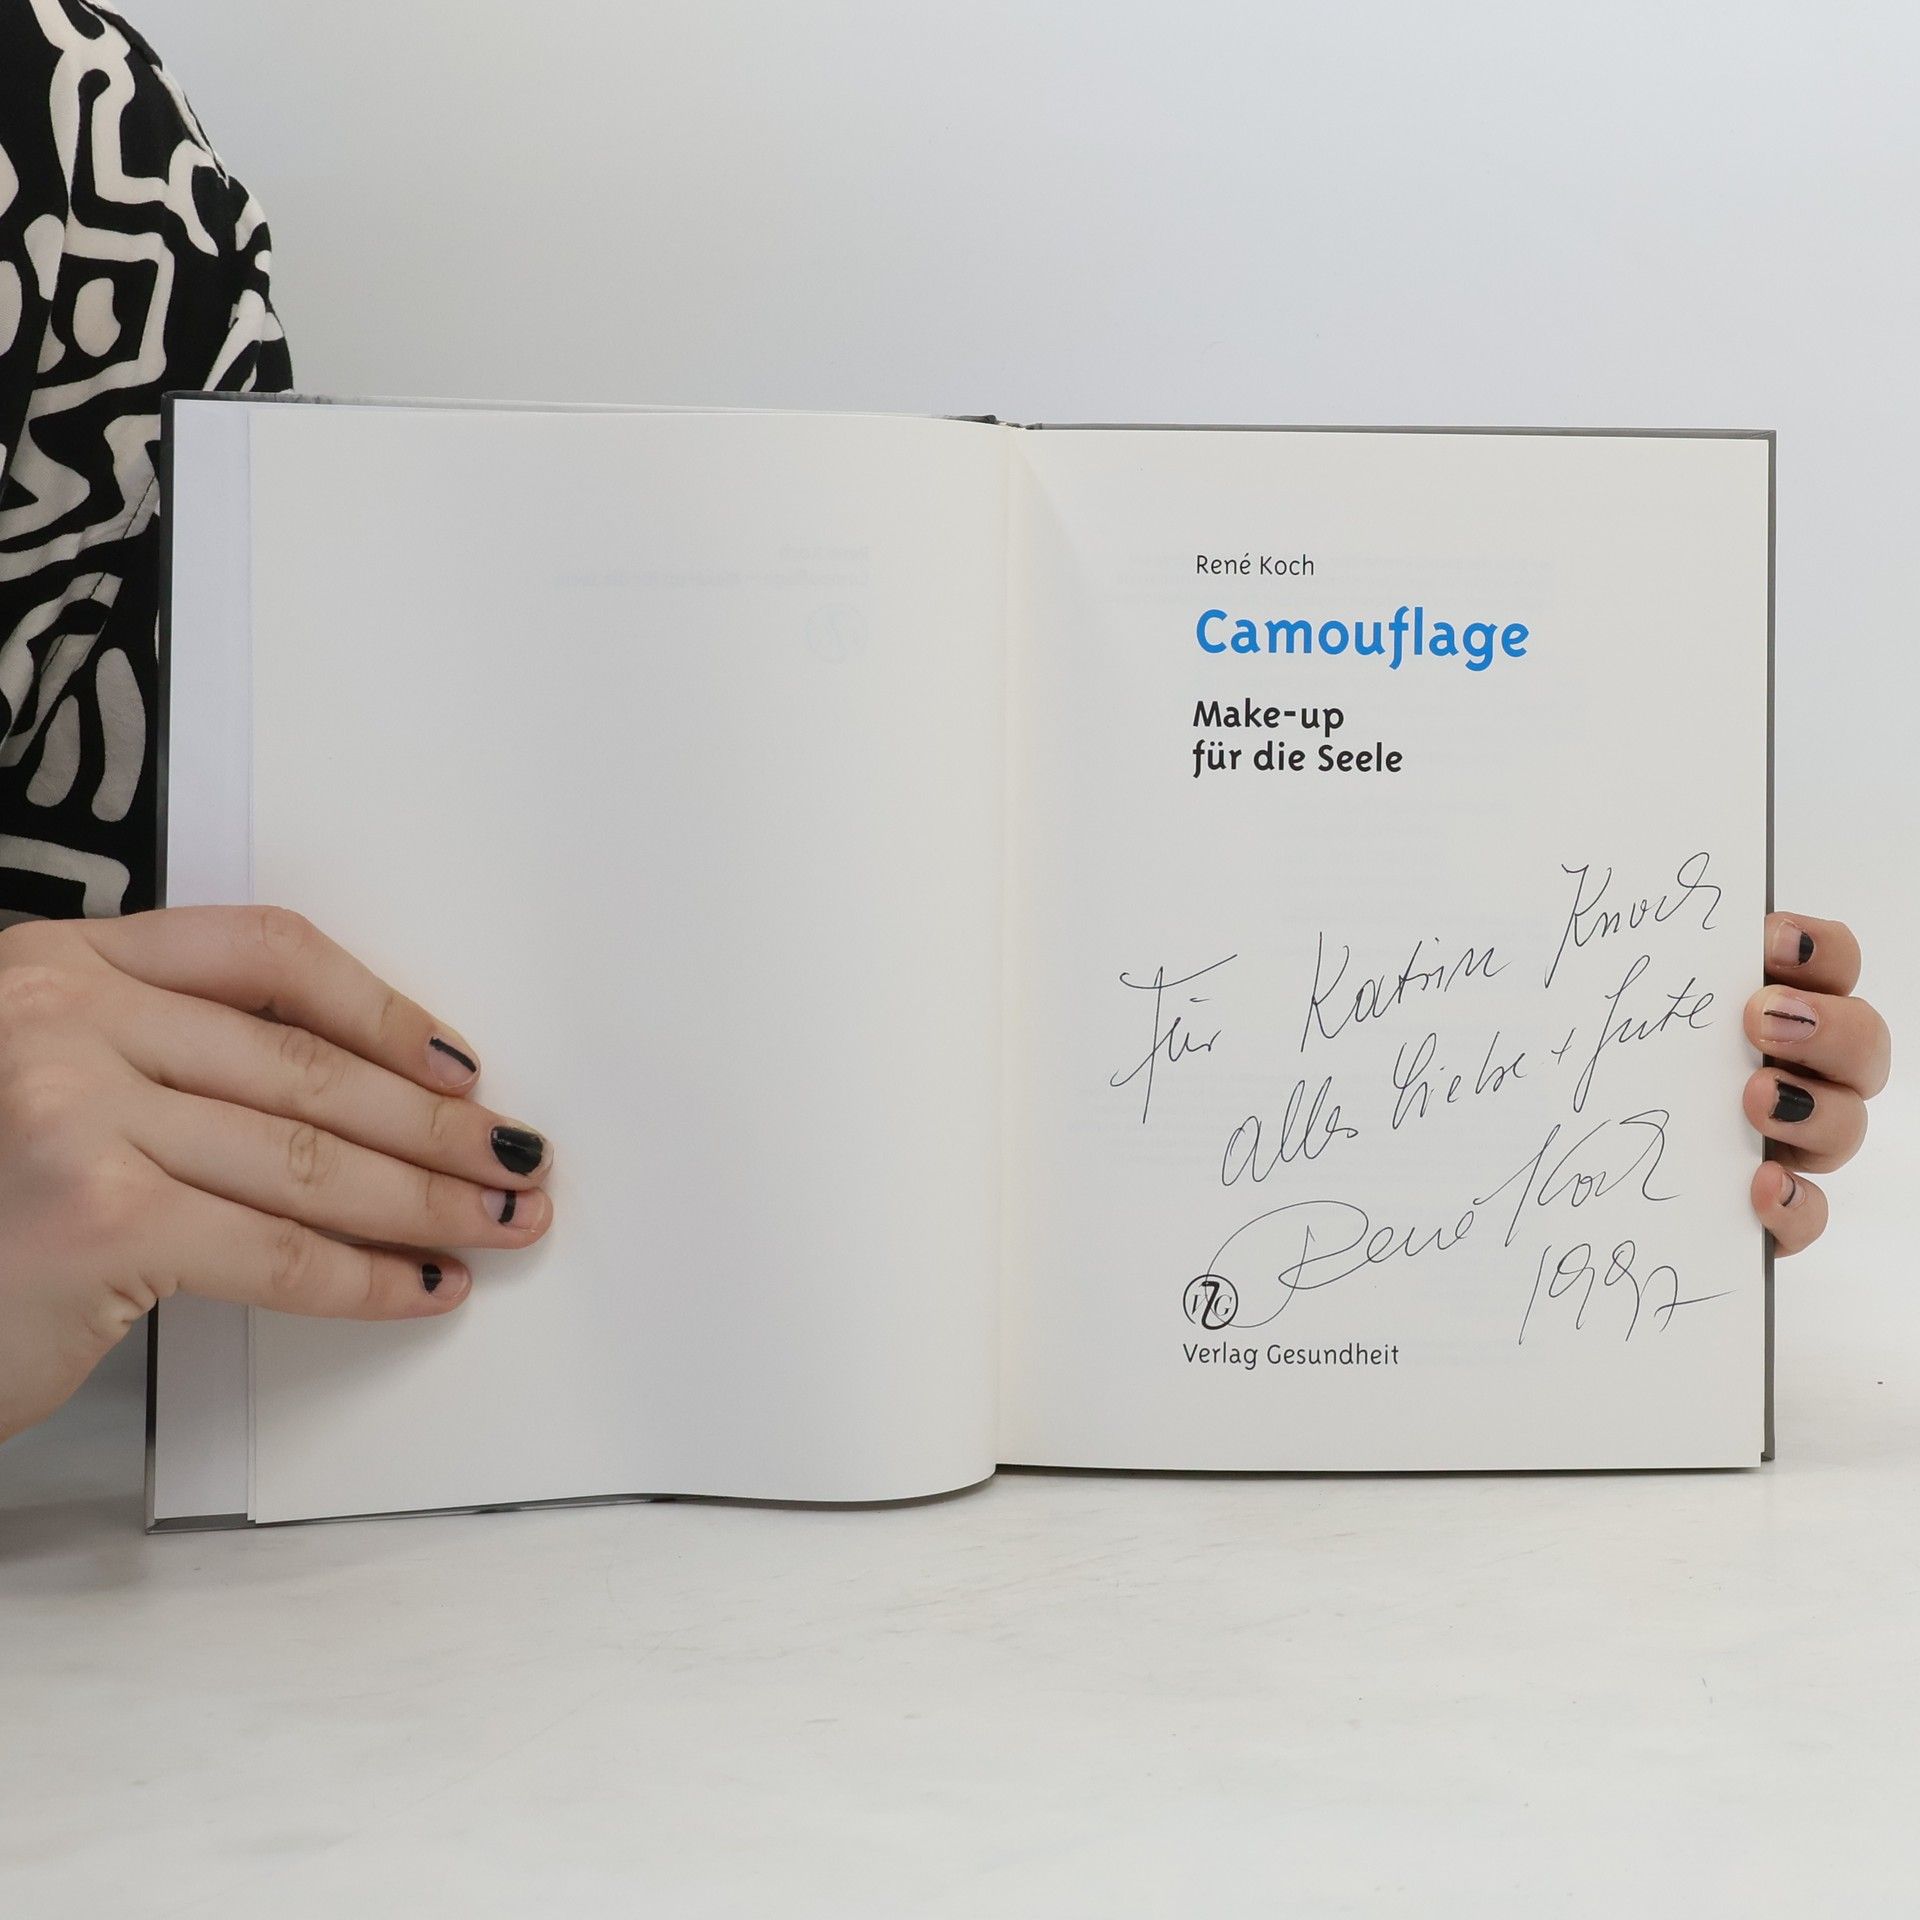 René Koch
Camouflage
Make-up
für die Seele
Für Katrin Knoch
alles Liebe + Gute
René Koch
1997
VG
Verlag Gesundheit